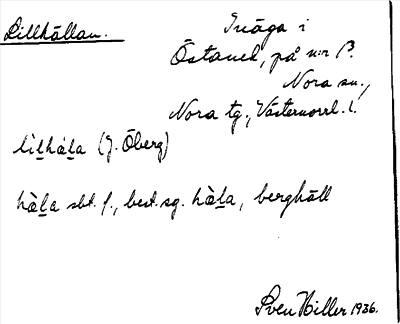 Lillhällan.
Inäga i
Östanek, på n:r 13.
Nora sn.,
Nora tg., Västernorrl. l.
lilhäla (J. Öberg)
hàla sbt. f., best. sg. hàla, berghäll
Sven Hiller 1936.